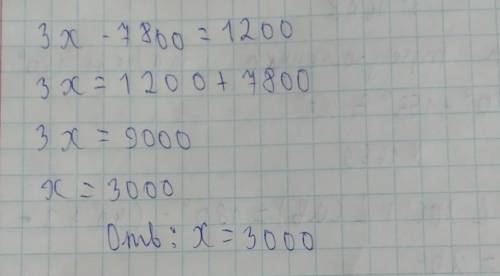 3x - 7800 = 1200
3x = 1200 + 7800
3x = 9000
x = 3000
Отв: x = 3000